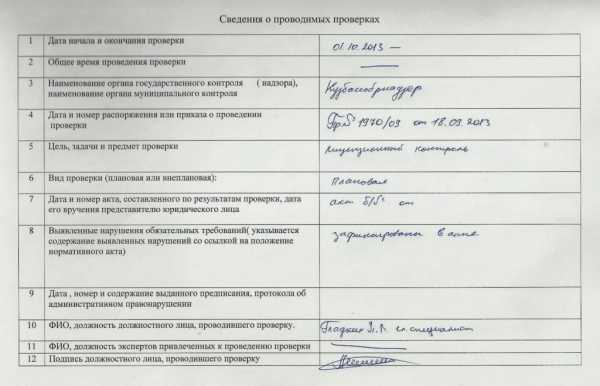 Сведения о проводимых проверках
1 Дата начала и окончания проверки 01.10.2013 —
2 Общее время проведения проверки —
3 Наименование органа государственного контроля ( надзора),
наименование органа муниципального контроля Кузбассобрнадзор
4 Дата и номер распоряжения или приказа о проведении
проверки Пр№ 1970/03 от 18.09.2013
5 Цель, задачи и предмет проверки лицензионный контроль
6 Вид проверки (плановая или внеплановая): плановая
7 Дата и номер акта, составленного по результатам проверки, дата
его вручения представителю юридического лица акт б/№ от
8 Выявленные нарушения обязательных требований( указывается
содержание выявленных нарушений со ссылкой на положение
нормативного акта) зафиксированы в акте
9 Дата , номер и содержание выданного предписания, протокола об
административном правонарушении
10 ФИО, должность должностного лица, проводившего проверку. гл. специалист
11 ФИО, должность экспертов привлеченных к проведению проверки —
12 Подпись должностного лица, проводившего проверку